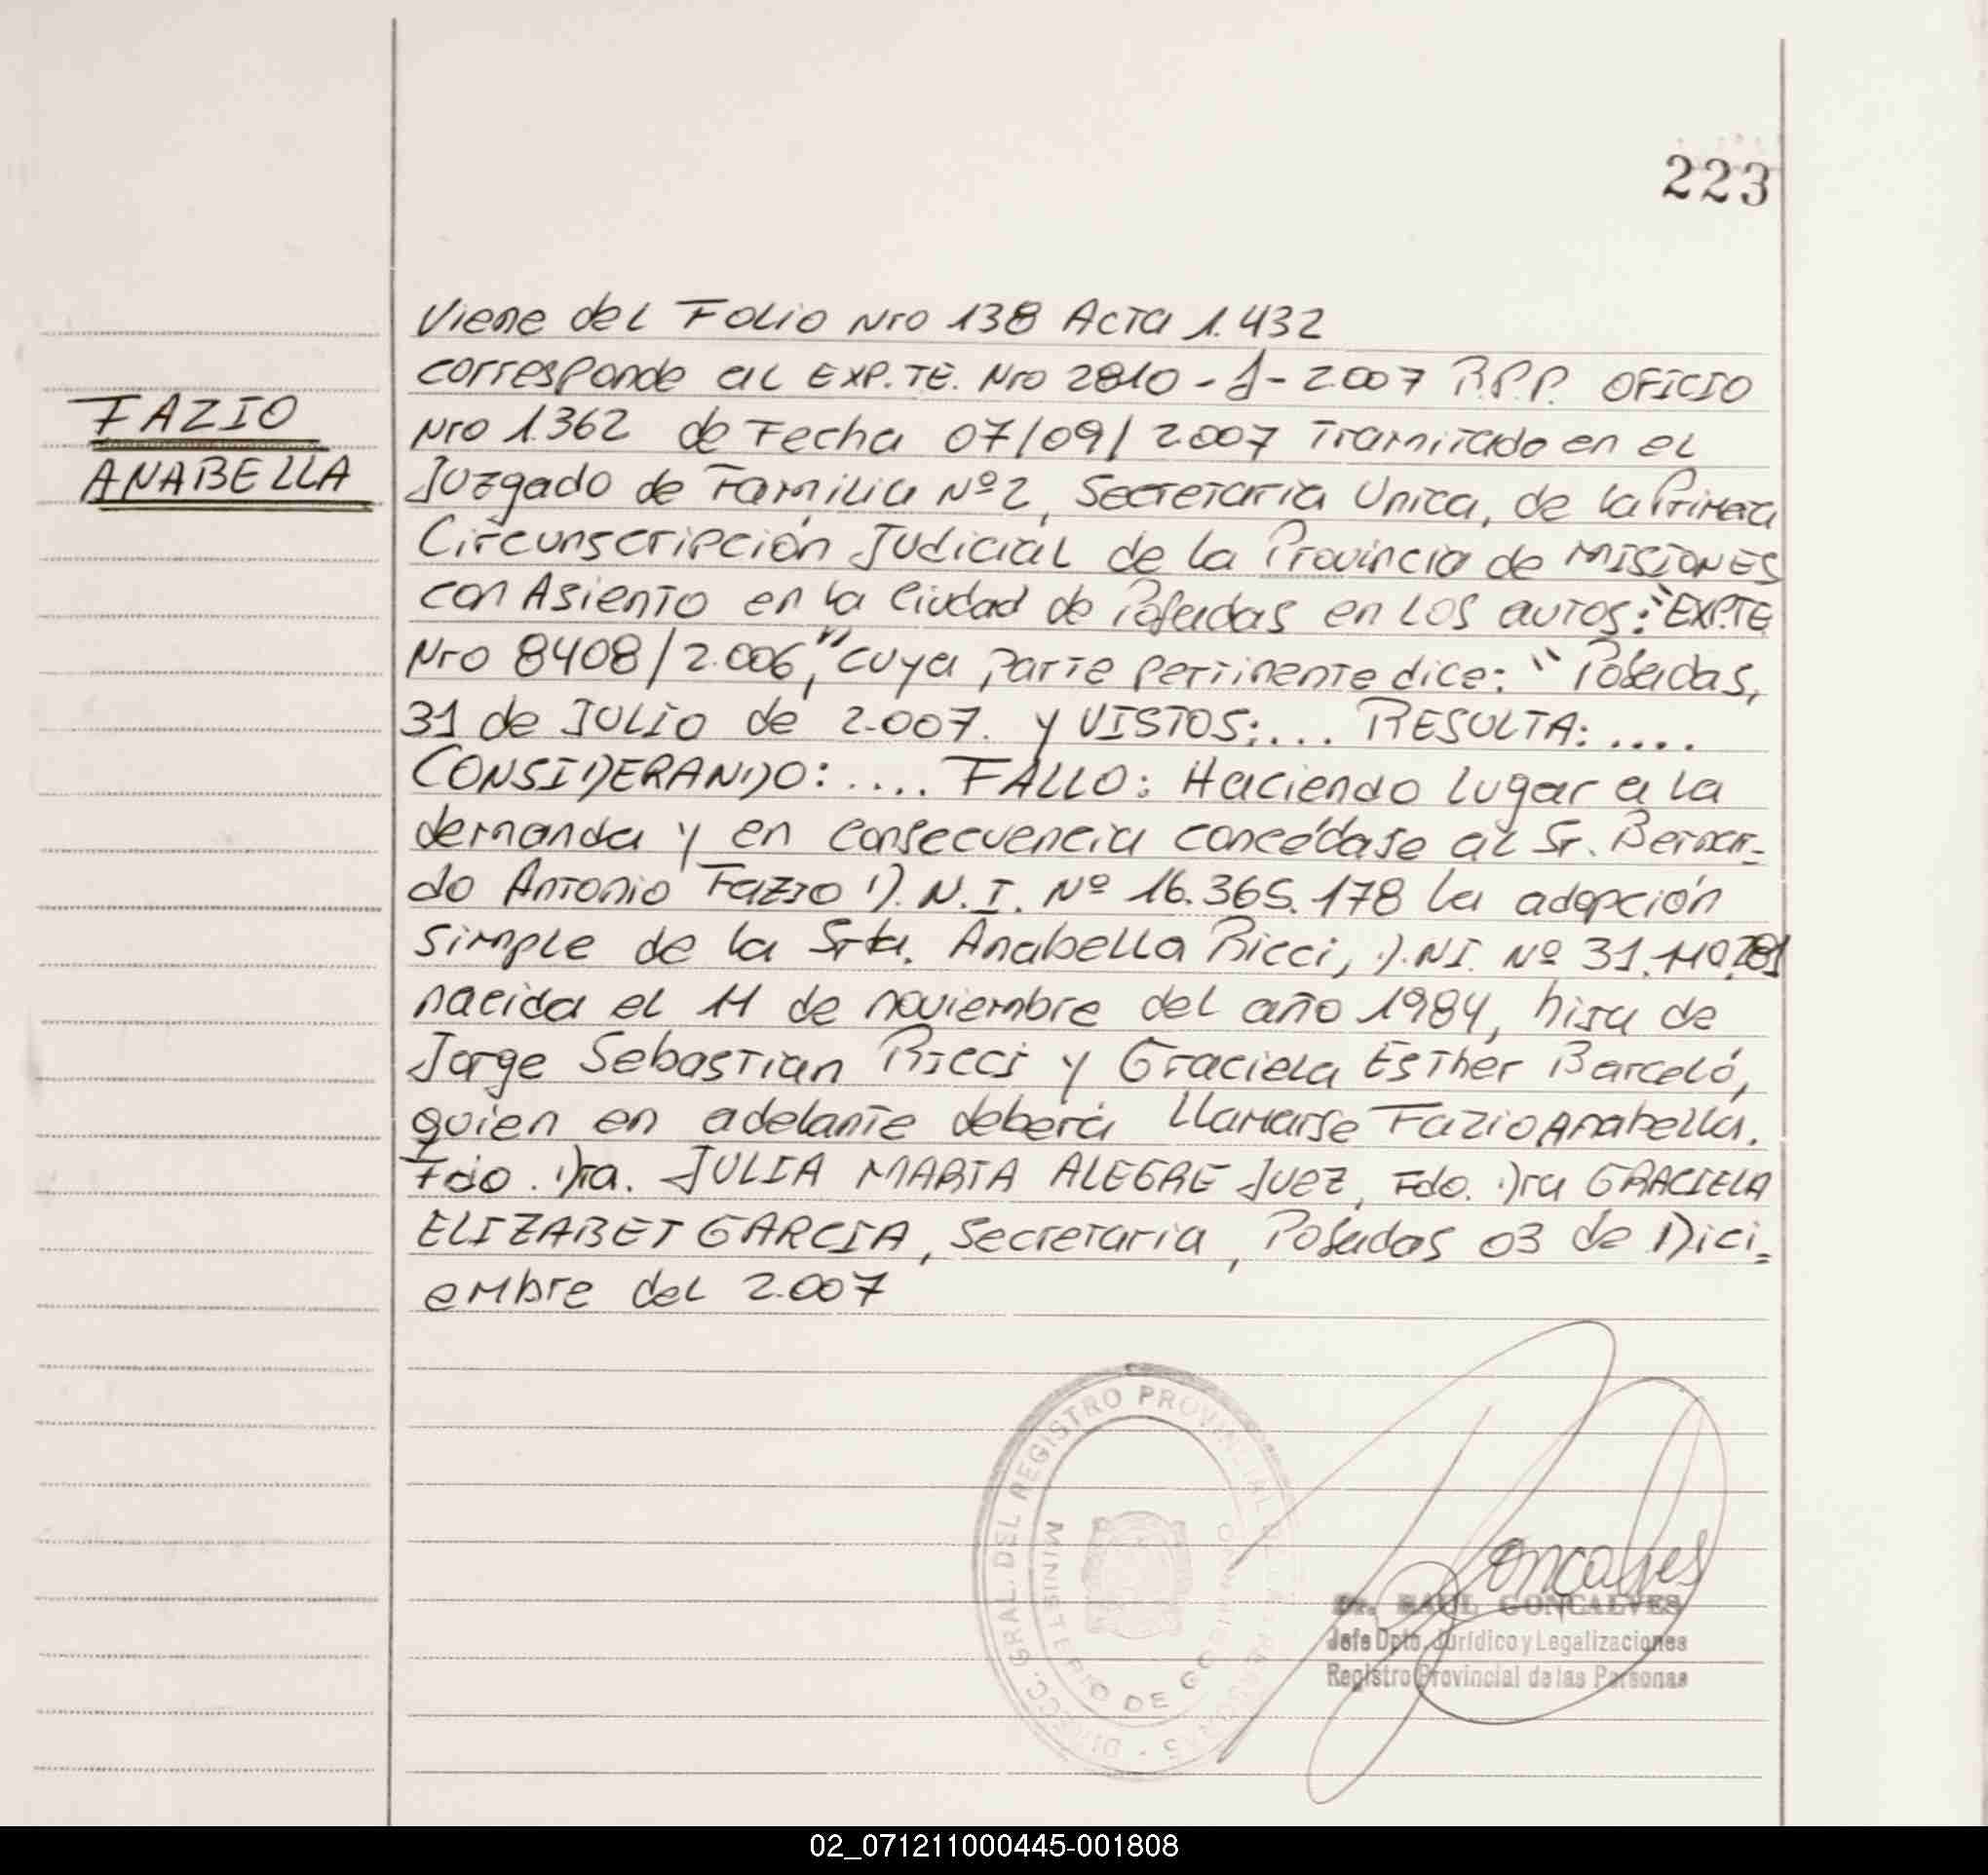 223
Viene del Folio Nro 138 Acta 1.432
corresponde al EXP.TE. Nro 2810 - J - 2007 R.P.P. OFICIO
Nro 1.362 de Fecha 07/09/2.007 Tramitado en el
Juzgado de Familia Nº 2, Secretaria Unica, de la Primera
Circunscripción Judicial de la Provincia de MISIONES
con Asiento en la Ciudad de Posadas en los autos: "EXP.TE
Nro 8408/2.006," cuya parte pertinente dice: "Posadas,
31 de JULIO de 2.007. y VISTOS:... RESULTA:....
CONSIDERANDO:.... FALLO: Haciendo lugar a la
demanda y en consecuencia concédase al Sr. Bernar-
do Antonio Fazio D.N.I. Nº 16.365.178 la adopción
simple de la Srta. Anabella Ricci, D.NI. Nº 31.110.781
nacida el 11 de noviembre del año 1984, hija de
Jorge Sebastian Ricci y Graciela Esther Barceló,
quien en adelante deberá llamarse Fazio Anabella.
Fdo. Dra. JULIA MARTA ALEGRE Juez, Fdo. Dra GRACIELA
ELIZABET GARCIA, Secretaria, Posadas 03 de Dici=
embre del 2.007
FAZIO
ANABELLA
DIRECC. GRAL. DEL REGISTRO PROVINCIAL DE LAS PERSONAS
MINISTERIO DE GOBIERNO
Goncalves
Dr. RAUL GONCALVES
Jefe Dpto. Jurídico y Legalizaciones
Registro Provincial de las Personas
02_071211000445-001808